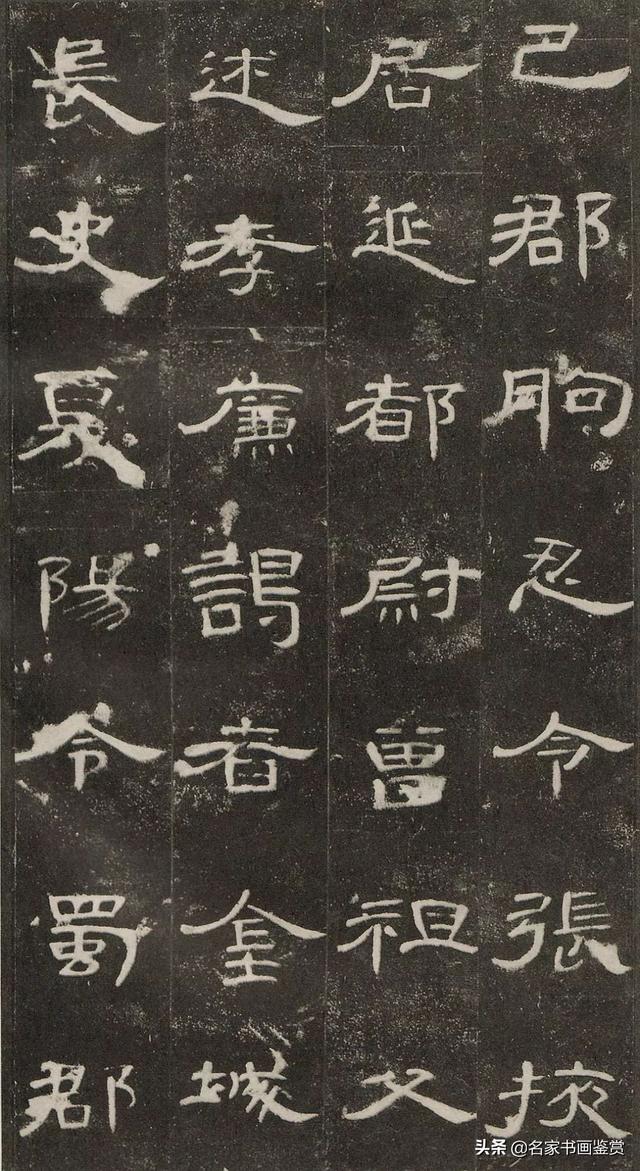 巴郡朐忍令張掖
居延都尉曾祖父
述孝廉謁者金城
長史夏陽令蜀郡
头条 @名家书画鉴赏